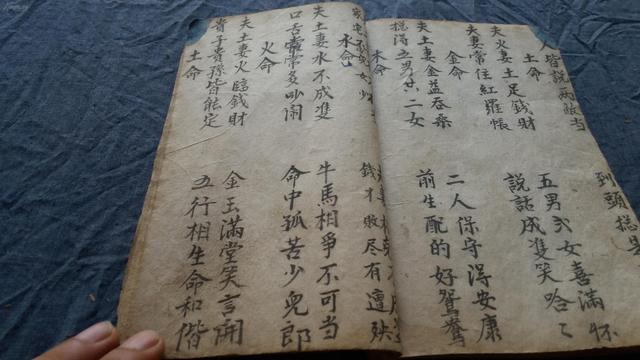 人皆説兩敵当
到頭揔是
土命
夫火妻土足錢財
五男式女喜滿怀
夫妻常住紅羅帳
説話成雙笑哈〻
金命
夫土妻金益吞桑
二人保守得安康
揔得五男共二女
前生配的好鴛鴦
木命
錢才敗尽有遭殃
水命
夫土妻水不成雙
牛馬相爭不可当
口舌常常多吵鬧
命中孤苦少兒郎
火命
夫土妻火臨錢財
金玉滿堂笑言開
貴子貴孫皆能定
五行相生命和偕
土命